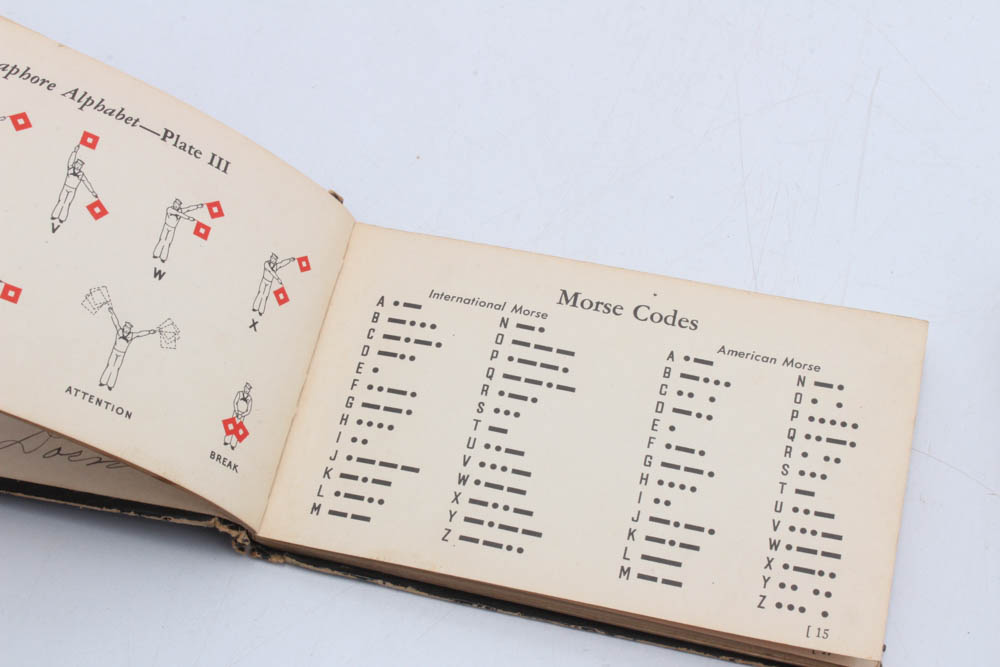 aphore Alphabet—Plate III
V
W
X
ATTENTION
BREAK
Morse Codes
International Morse
A •—
B —•••
C —•—•
D —••
E •
F ••—•
G ——•
H ••••
I ••
J •———
K —•—
L •—••
M ——
N —•
O ———
P •——•
Q ——•—
R •—•
S •••
T —
U ••—
V •••—
W •——
X —••—
Y —•——
Z ——••
American Morse
A •—
B —•••
C •• •
D —••
E •
F •—•
G ——•
H ••••
I ••
J —•—•
K —•—
L —
M ——
N —•
O • •
P •••••
Q ••—•
R • ••
S •••
T —
U ••—
V •••—
W •——
X •—••
Y •• ••
Z ••• •
[ 15